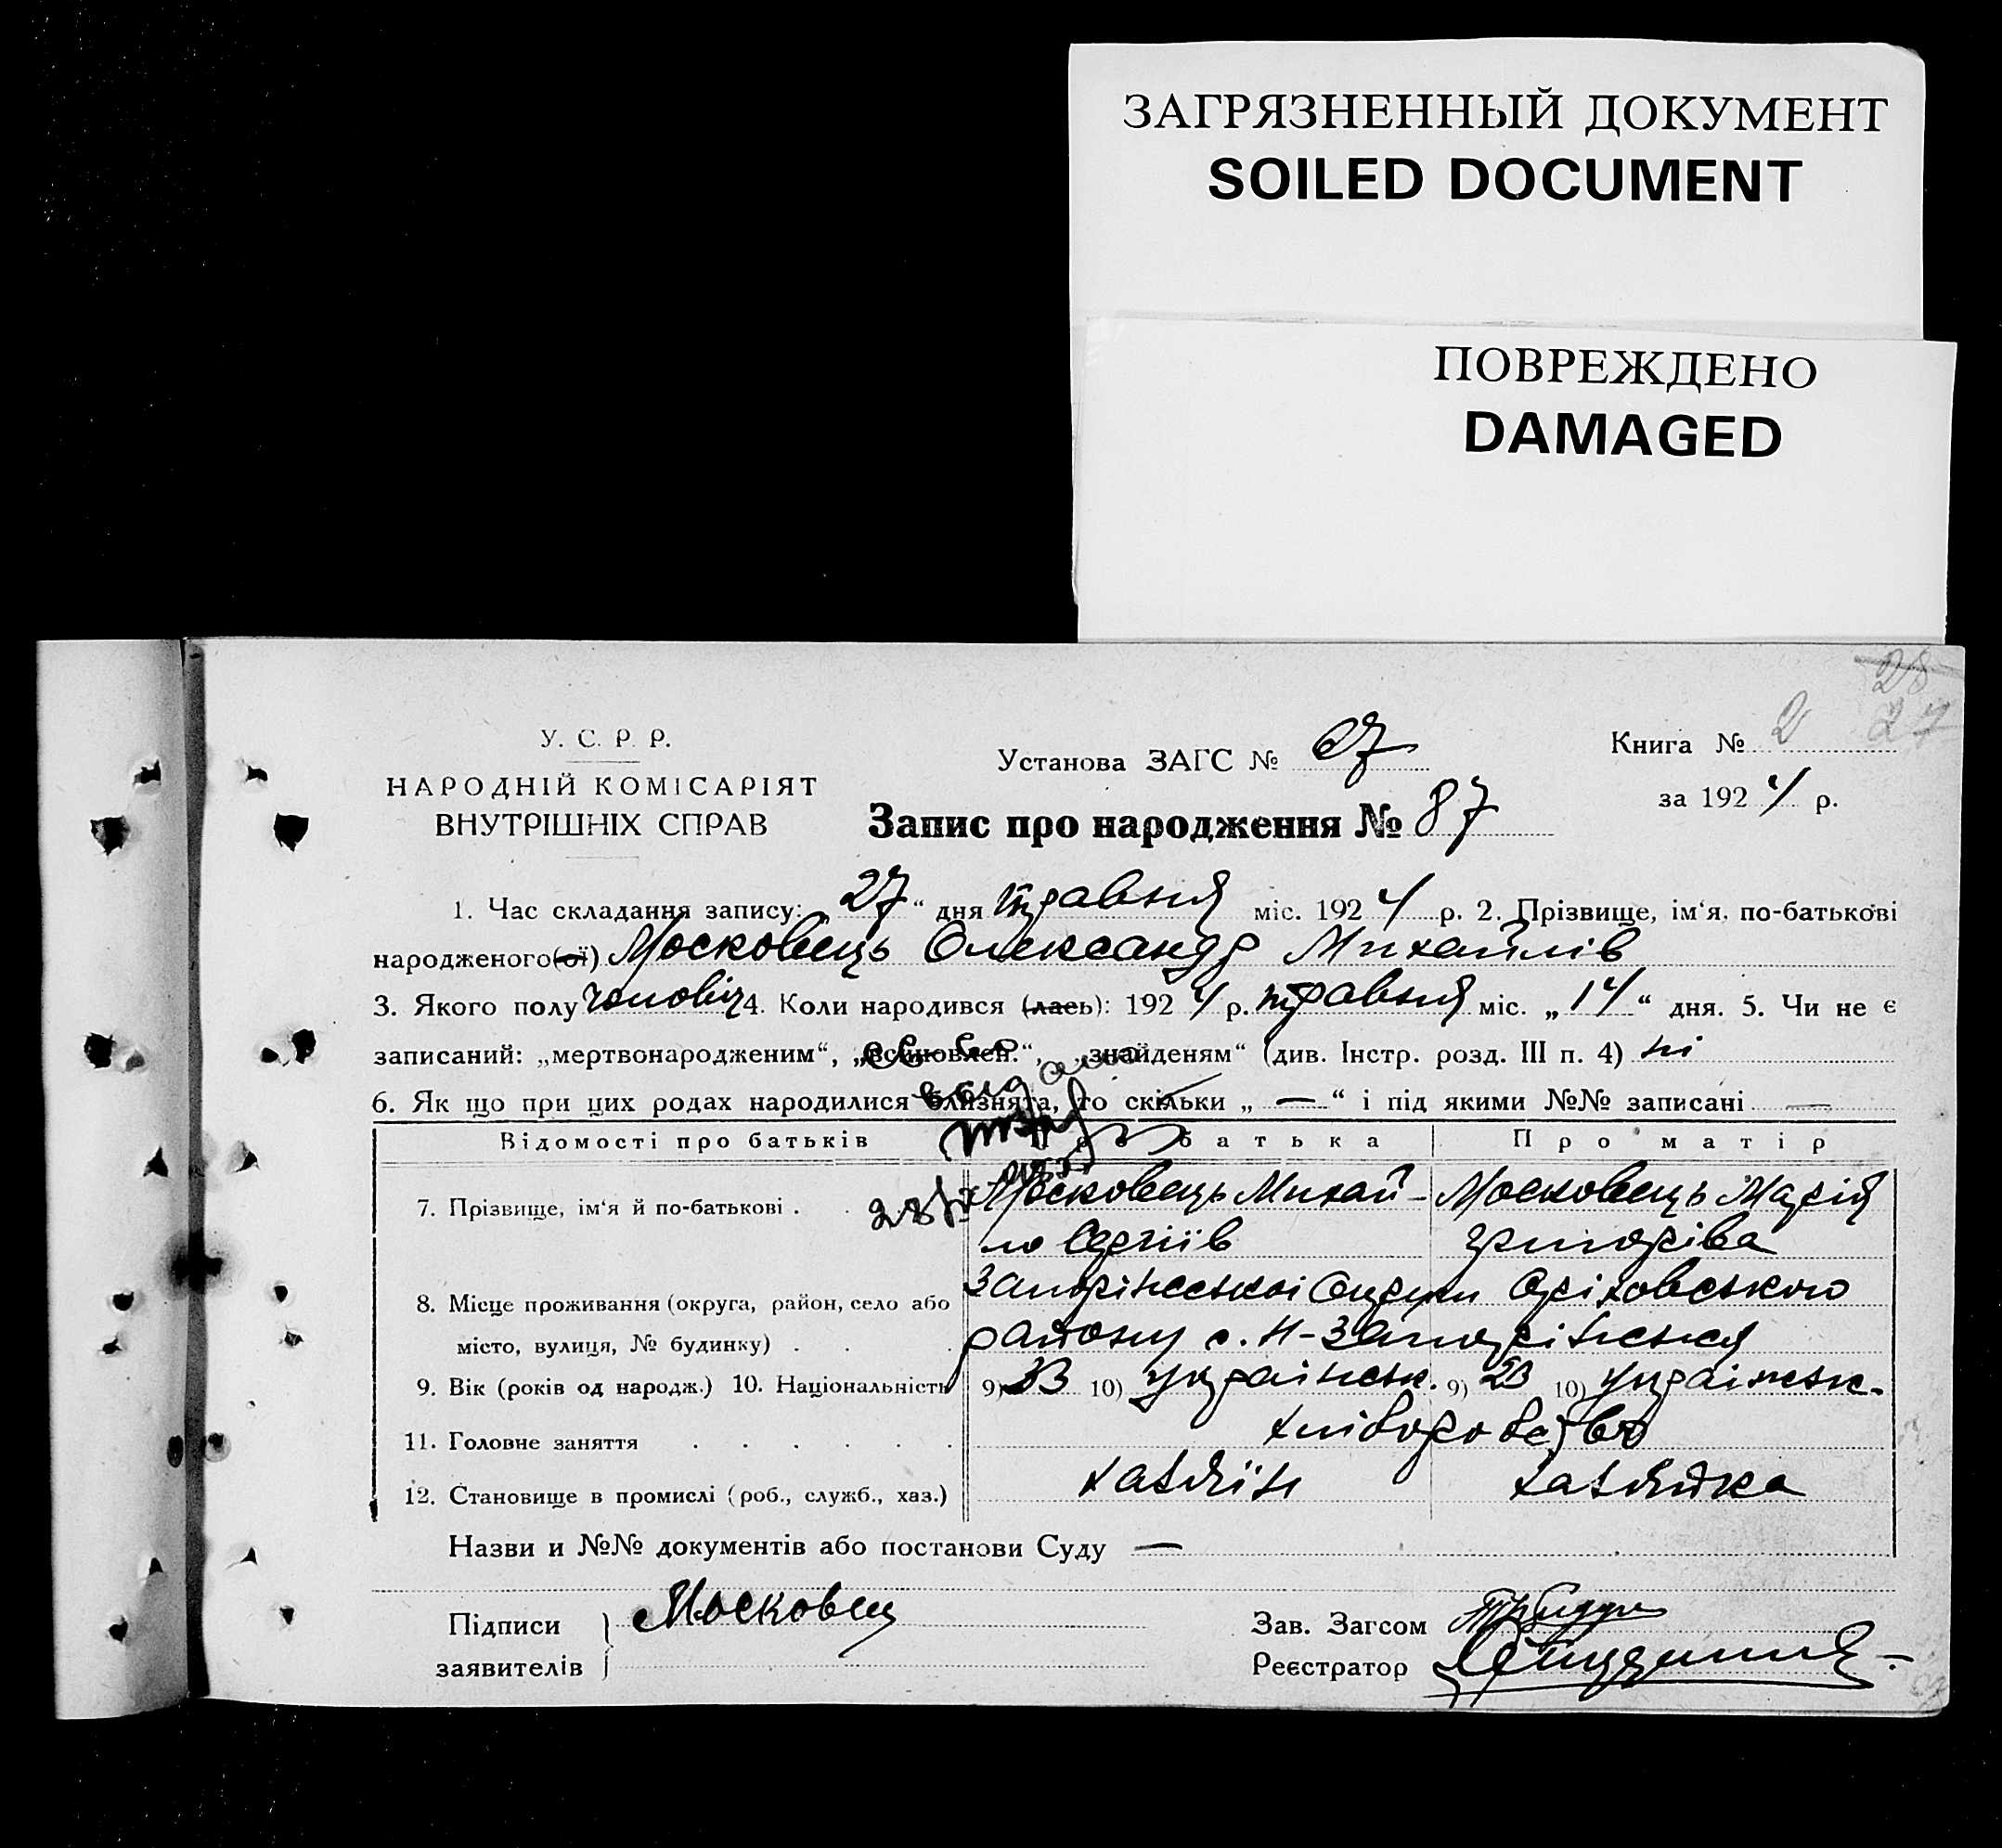 ЗАГРЯЗНЕННЫЙ ДОКУМЕНТ
SOILED DOCUMENT
ПОВРЕЖДЕНО
DAMAGED
28
27
У. С. Р. Р.
НАРОДНІЙ КОМІСАРІЯТ
ВНУТРІШНІХ СПРАВ
Установа ЗАГС №
Книга № 2
за 1924 р.
Запис про народження № 87
1. Час складання запису: 27 “ дня травня міс. 1924 р. 2. Прізвище, ім‘я, по-батькові
народженого(ої) Московець Олександр Михайлів
3. Якого полу чоловіч 4. Коли народився (лась): 1924 р. травня міс. „ 14 “ дня. 5. Чи не є
записаний: „мертвонародженим“, „всиновлен.“, „знайденям“ (див. Інстр. розд. III п. 4) ні
6. Як що при цих родах народилися близнята, то скільки „ — “ і під якими №№ записані —
Відомості про батьків Про батька Про матір
7. Прізвище, ім‘я й по-батькові . Московець Михай- Московець Марія
ло Сергіїв Григоріва
8. Місце проживання (округа, район, село або Запоріжської Округи Оріховського
місто, вулиця, № будинку) . . . району с. Н-Запоріжжя
9. Вік (років од народж.) 10. Національність 9) 33 10) Українськ. 9) 23 10) Українськ.
11. Головне заняття . . . . . . хліборобство
12. Становище в промислі (роб., служб., хаз.) хазяїн хазяйка
Назви и №№ документів або постанови Суду —
Підписи
заявителів
Московец
Зав. Загсом
Реєстратор